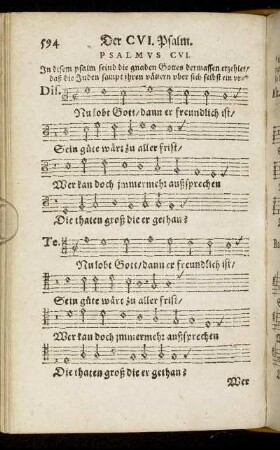 594 Der CVI. Psalm.
PSALMVS CVI.
In disem psalm seind die gnaden Gottes dermassen erzehlet/
daß die Juden sampt ihren vättern vber sich selbst ein
Dis.
Nu lobt Gott/ dann er freundlich ist/
Sein güte wärt zu aller frist/
Wer kan doch jmmermehr außsprechen
Die thaten groß die er gethan?
Te.
Nu lobet Gott/ dann er freundlich ist/
Sein güte wärt zu aller frist/
Wer kan doch jmmermehr außsprechen
Die thaten groß die er gethan?
Wer